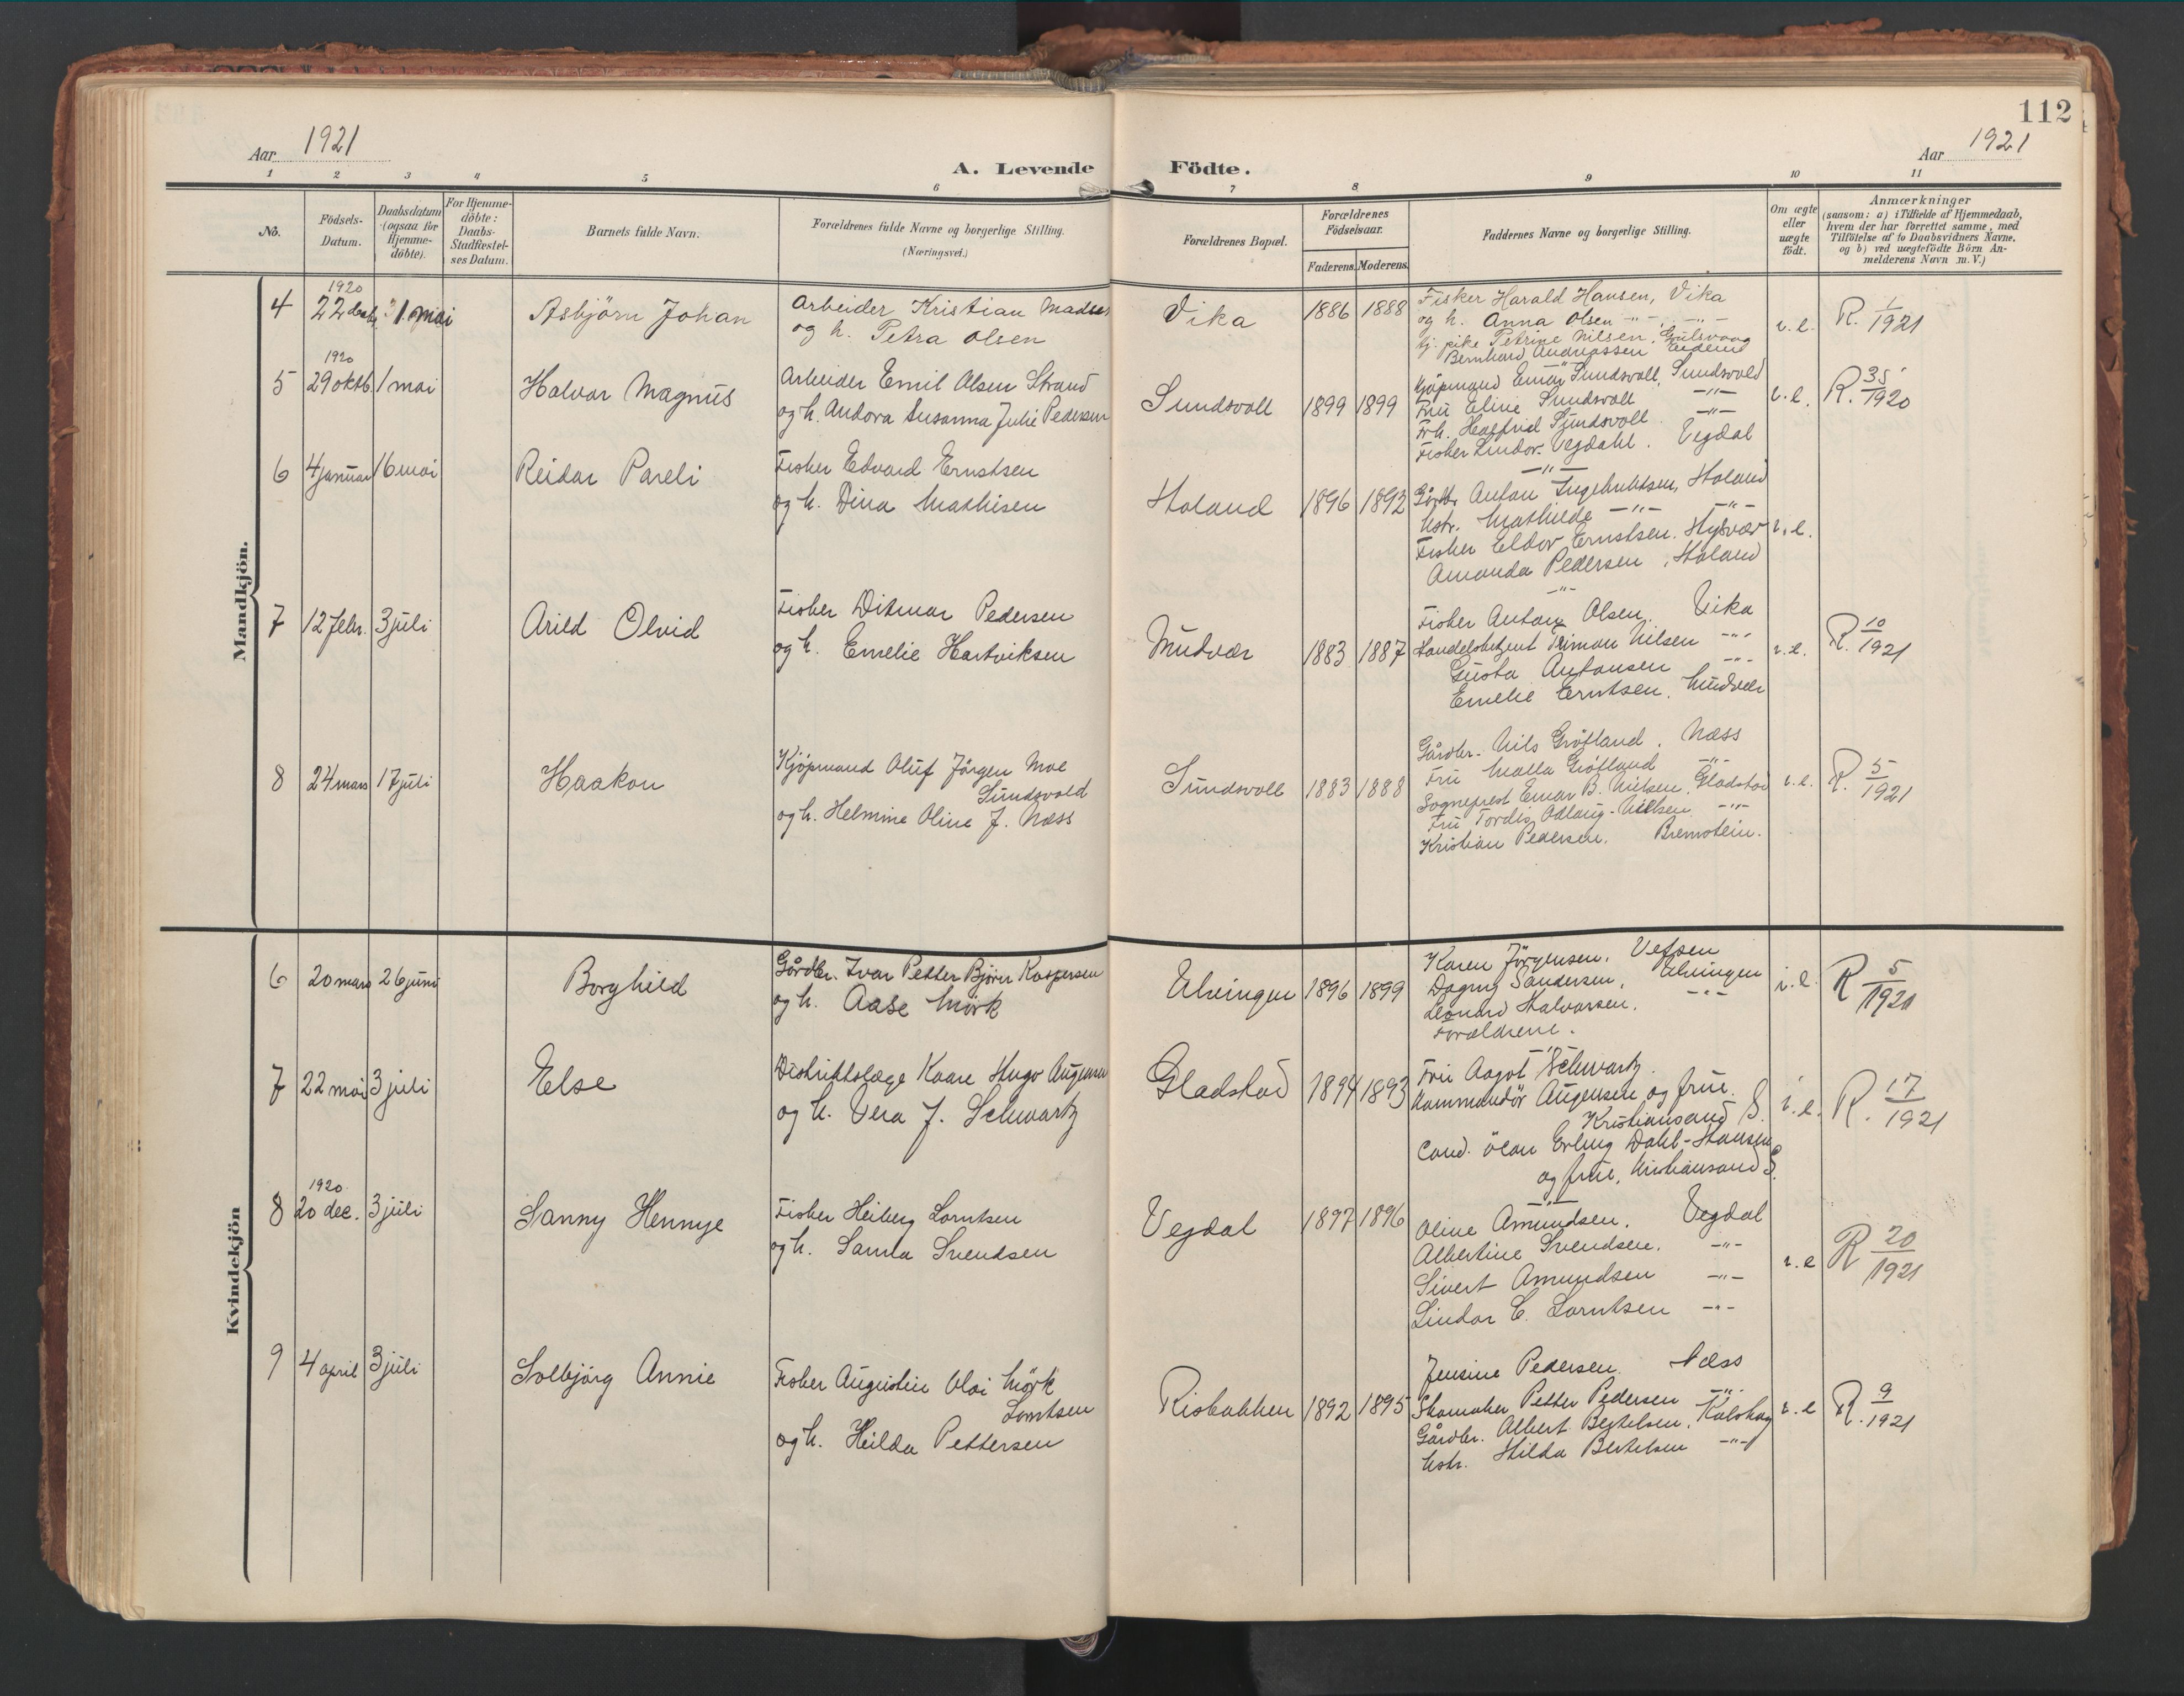 112
Aar 1921
Aar 1921
A. Levende Födte.
1 2 3 4 5 6 7 8 9 10 11
No.
Födsels-
Datum.
Daabsdatum
(ogsaa for
Hjemme-
döbte).
For Hjemme-
döbte:
Daabs-
Stadfæstel-
ses Datum.
Barnets fulde Navn.
Forældrenes fulde Navne og borgerlige Stilling.
(Næringsvei.)
Forældrenes Bopæl.
Forældrenes
Födselsaar.
Faderens. Moderens.
Faddernes Navne og borgerlige Stilling.
Om ægte
eller
uægte
födt.
Anmærkninger
(saasom: a) i Tilfælde af Hjemmedaab,
hvem der har forrettet samme, med
Tilföielse af to Daabsvidners Navne,
og b) ved uægtefödte Börn An-
melderens Navn m. V.)
Mandkjön.
4
1920
22 decbr.
1 mai
Asbjörn Johan
Arbeider Kristian Madsen
og h. Petra Olsen
Vika
1886 1888
Fisker Harald Hansen, Vika
og h. Anna Olsen -"- -"-
tj. pike Petrine Nilsen, Gulsvaag
Bernhard Andreassen
i. e.
R. 1/1921
5
1920
29 oktb.
1 mai
Halvar Magnus
Arbeider Emil Olsen Strand
og h. Andora Susanna Julie Pedersen
Sundsvoll
1899 1899
Kjöpmand Einar Sundsvoll, Sundsvold
Fru Eline Sundsvoll -"-
Frk. Hagfrid Sundsvoll -"-
Fisker Lindor Vegdahl. Vegdal
i. e.
R. 35/1920
6
4 januar
16 mai
Reidar Pareli
Fisker Edvard Ernstsen
og h. Dina Mathisen
Holand
1896 1892
-"-
Gårdbr. Anton Ingebriktsen, Holand
Hstr. Mathilde -"- -"-
Fisker Eldor Ernstsen. Hysvær
Amanda Pedersen, Holand
i. e.
7
12 febr.
3 juli
Arild Olvid
Fisker Ditmar Pedersen
og h. Emelie Hartviksen
Mudvær
1883 1887
-"-
Fisker Anton Olsen. Vika
Handelsbetjent Simon Nilsen -"-
Gusta Antonsen -"-
Emelie Erntsen. Mudvær
i. e.
R. 10/1921
8
24 mars
17 juli
Haakon
Kjöpmand Oluf Jörgen Moe
Sundsvold
og h. Helmine Oline J. Næss
Sundsvoll
1883 1888
Gårdbr. Nils Gröfland. Næss
Fru Malla Gröfland -"-
Sogneprest Einar B. Nilsen, Gladstad
Fru Tordis Odlaug-Nilsen -"-
Kristian Pedersen. Bremstein.
i. e.
R. 5/1921
Kvindekjön
6
20 mars
26 juni
Borghild
Gårdbr. Ivar Petter Björn Kaspersen
og h. Aase Mörk
Ulvingen
1896 1899
Karen Jörgensen. Vefsen
Dagny Sandersen, Ulvingen
Leonard Halvorsen. -"-
Forældrene.
i. e.
R 5/1921
7
22 mai
3 juli
Else
Distriktslæge Kaare Hugo Augensen
og h. Vera J. Schwartz
Gladstad
1894 1893
-"-
Fru Aagot Schwartz.
Kommandör Augensen og frue.
Kristiansand S.
Cand. ökon Erling Dahl-Hansen
og frue, Kristiansand S.
i. e.
R. 17/1921
8
1920
20 dec.
3 juli
Sanny Hennye
Fisker Heiberg Lorntsen
og h. Sanna Svendsen
Vegdal
1897 1896
-"-
Oline Amundsen. Vegdal
Albertine Svendsen. -"-
Sivert Amundsen -"-
Lindor C. Lorntsen -"-
i. e
R 20/1921
9
4 april
3 juli
Solbjörg Annie
Fisker Augustin Olai Mörk
Lorntsen
og h. Heilda Pettersen
Risbakken
1892 1895
Jensine Pedersen. Næss
Skomaker Petter Pedersen -"-
Gårdbr. Albert Bertelsen, Kulshag
Hstr. Hilda Bertelsen -"-
i. e
R. 9/1921